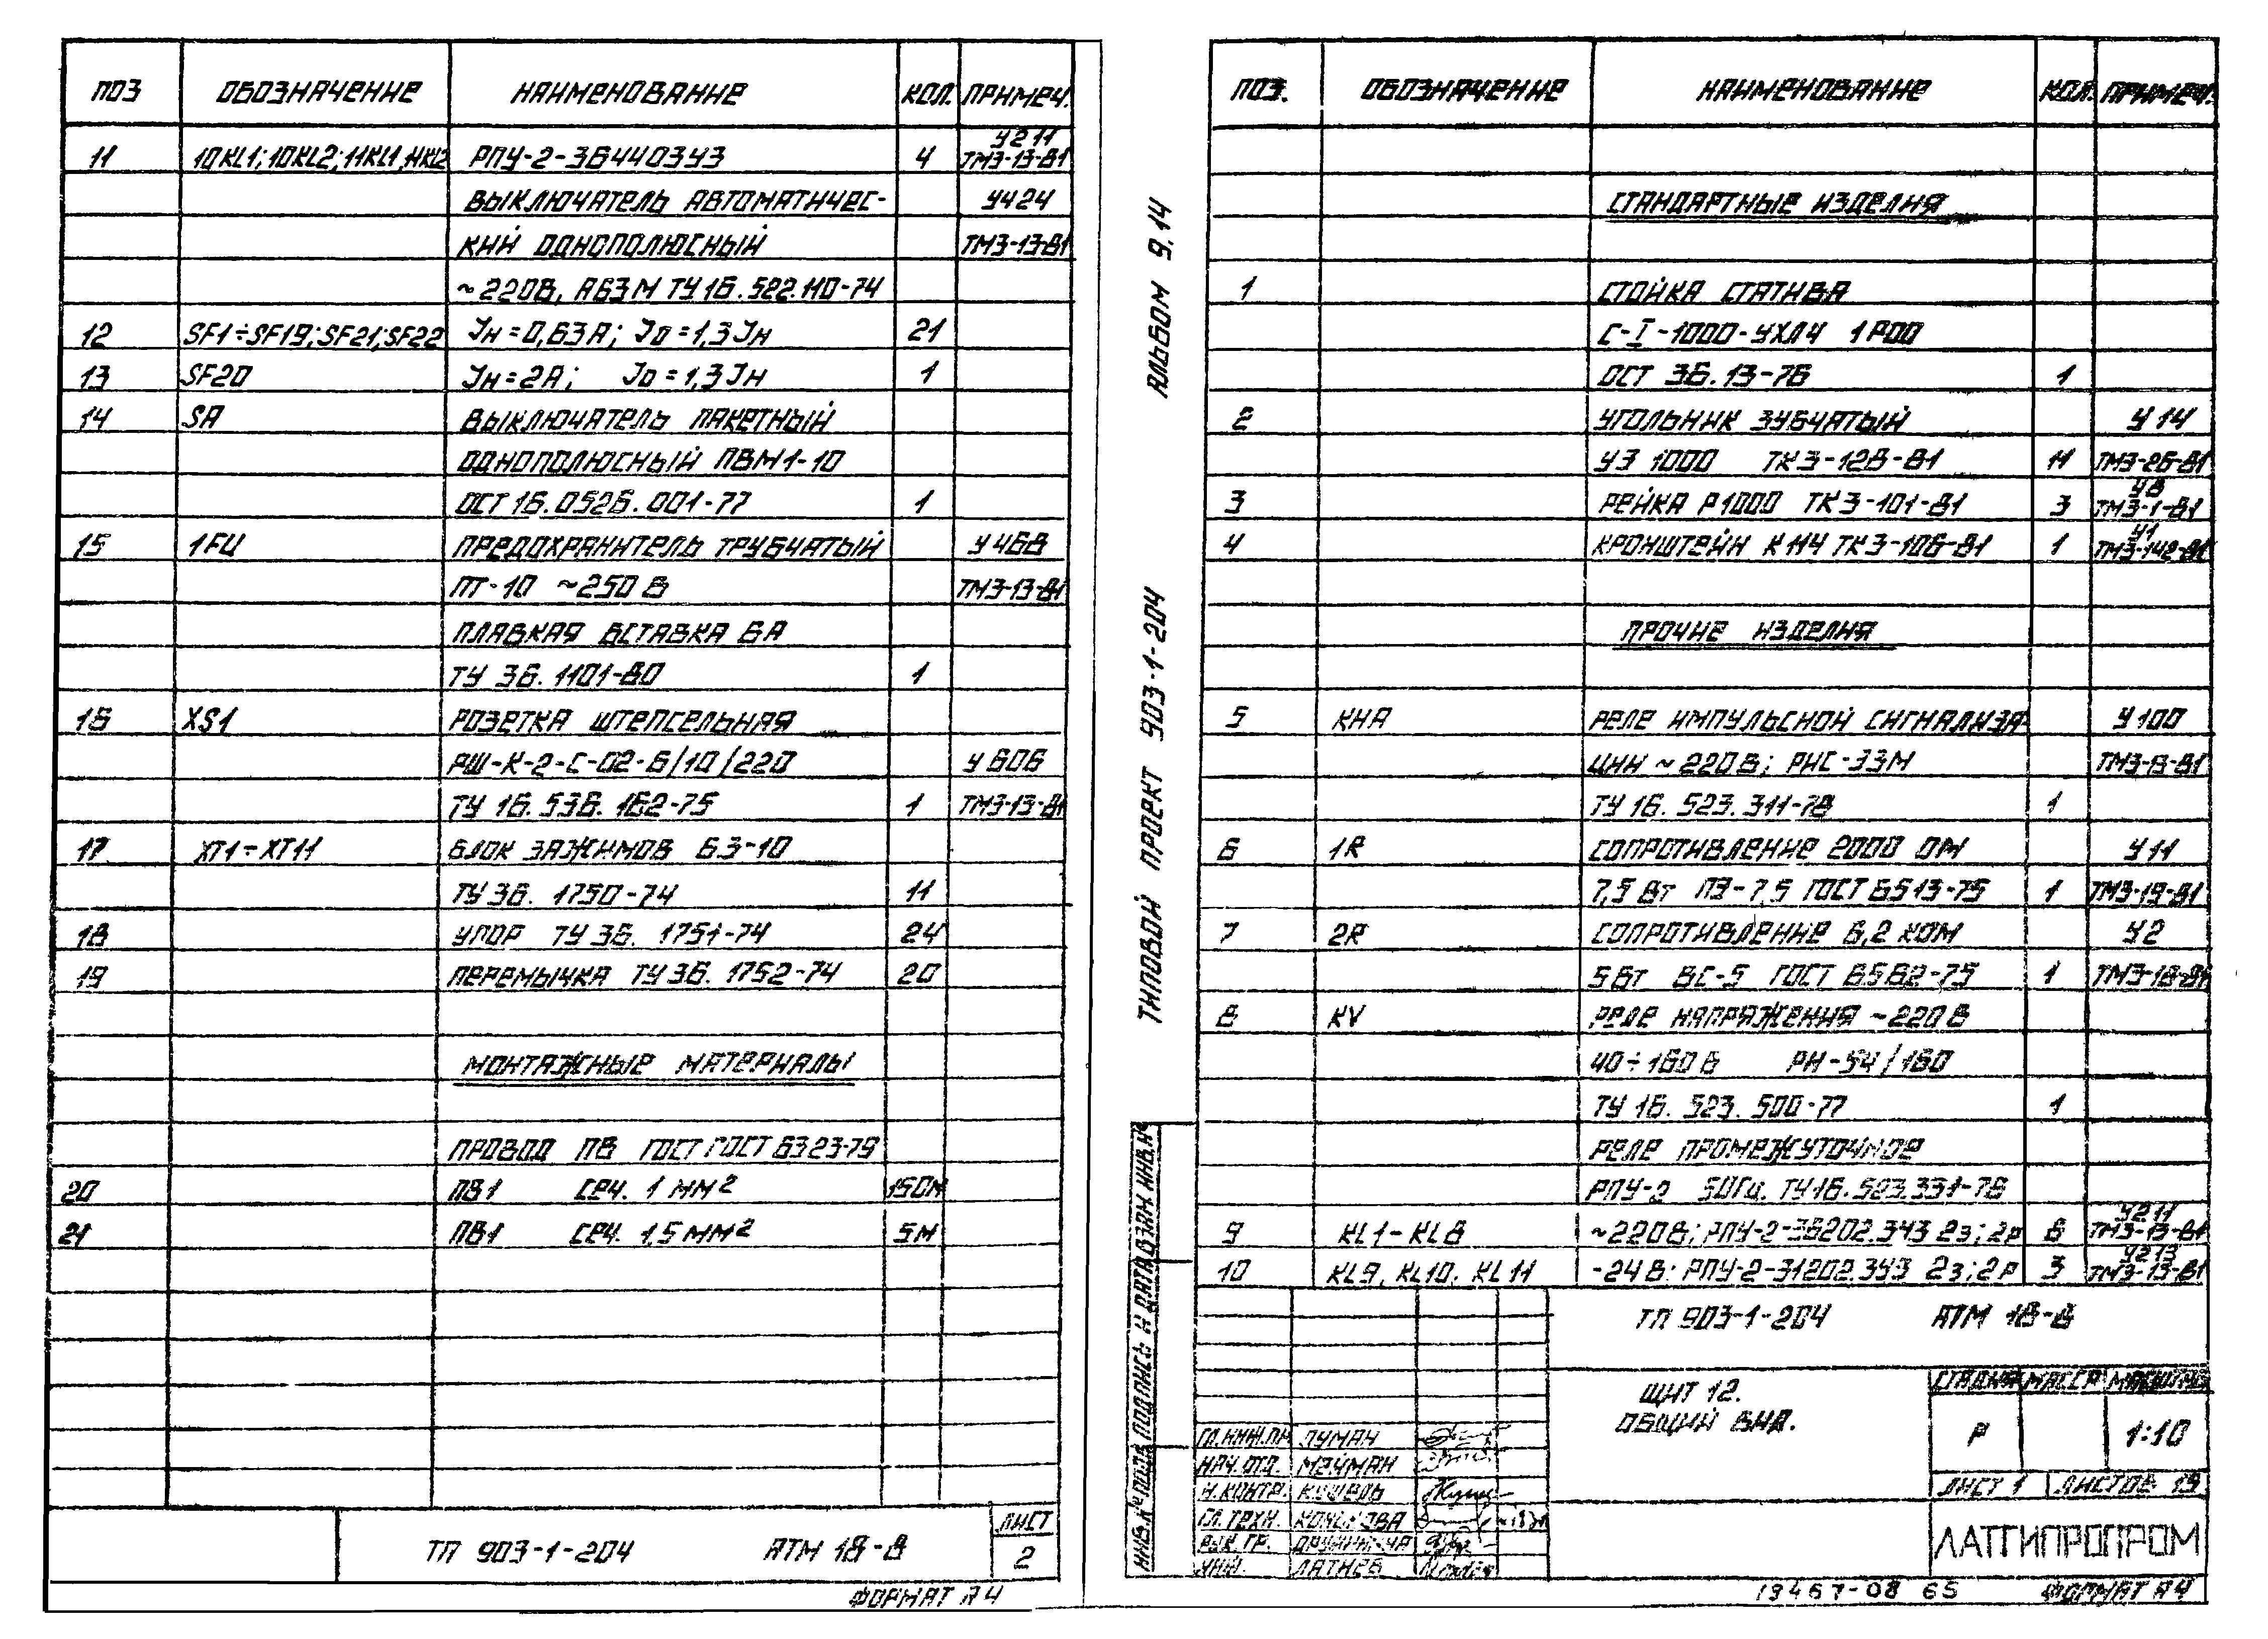 ПОЗ ОБОЗНАЧЕНИЕ НАИМЕНОВАНИЕ КОЛ. ПРИМЕЧ.
У211
11 10KL1; 10KL2; 11KL1, 11KL2 РПУ-2-364403У3 4 ТМ3-13-81
ВЫКЛЮЧАТЕЛЬ АВТОМАТИЧЕС- У424
КИЙ ОДНОПОЛЮСНЫЙ ТМ3-13-81
~220В, А63М ТУ16.522.110-74
12 SF1÷SF19; SF21; SF22 Jн=0,63А; Jо=1,3Jн 21
13 SF20 Jн=2А; Jо=1,3Jн 1
14 SA ВЫКЛЮЧАТЕЛЬ ПАКЕТНЫЙ
ОДНОПОЛЮСНЫЙ ПВМ1-10
ОСТ 16.0526.001-77 1
15 1FU ПРЕДОХРАНИТЕЛЬ ТРУБЧАТЫЙ У468
ПТ-10 ~250В ТМ3-13-81
ПЛАВКАЯ ВСТАВКА 6А
ТУ 36.1101-80 1
16 XS1 РОЗЕТКА ШТЕПСЕЛЬНАЯ
РШ-К-2-С-02-6/10/220 У606
ТУ 16.536.162-75 1 ТМ3-13-81
17 XT1÷XT11 БЛОК ЗАЖИМОВ БЗ-10
ТУ 36.1750-74 11
18 УПОР ТУ 36.1751-74 24
19 ПЕРЕМЫЧКА ТУ 36.1752-74 20
МОНТАЖНЫЕ МАТЕРИАЛЫ
ПРОВОД ПВ ГОСТ ГОСТ 6323-79
20 ПВ1 СЕЧ. 1 ММ2 150М
21 ПВ1 СЕЧ. 1,5 ММ2 5М
ТП 903-1-204 АТМ 18-8 ЛИСТ
2
ФОРМАТ А4
АЛЬБОМ 9.14
ТИПОВОЙ ПРОЕКТ 903-1-204
ПОЗ. ОБОЗНАЧЕНИЕ НАИМЕНОВАНИЕ КОЛ. ПРИМЕЧ.
СТАНДАРТНЫЕ ИЗДЕЛИЯ
1 СТОЙКА СТАТИВА
С-I-1000-УХЛ4 1Р00
ОСТ 36.13-76 1
2 УГОЛЬНИК ЗУБЧАТЫЙ У14
УЗ 1000 ТК3-128-81 11 ТМ3-26-81
У8
3 РЕЙКА Р1000 ТК3-101-81 3 ТМ3-1-81
У1
4 КРОНШТЕЙН К114 ТК3-106-81 1 ТМ3-142-81
ПРОЧИЕ ИЗДЕЛИЯ
5 КНА РЕЛЕ ИМПУЛЬСНОЙ СИГНАЛИЗА У100
ЦИИ ~220В; РИС-33М ТМ3-13-81
ТУ 16.523.311-78 1
6 1R СОПРОТИВЛЕНИЕ 2000 ОМ У11
7,5 Вт ПЭ-7,5 ГОСТ 6513-75 1 ТМ3-19-81
7 2R СОПРОТИВЛЕНИЕ 6,2 КОМ У2
5Вт ВС-5 ГОСТ 6562-75 1 ТМ3-18-81
8 KV РЕЛЕ НАПРЯЖЕНИЯ ~220В
40÷160В РН-54/160
ТУ 16.523.500-77 1
РЕЛЕ ПРОМЕЖУТОЧНОЕ
РПУ-2 50Гц. ТУ16.523.331-78
У211
9 KL1-KL8 ~220В; РПУ-2-36202.3У3 2з; 2р 8 ТМ3-13-81
У213
10 KL9, KL10, KL11 -24В; РПУ-2-31202.3У3 2з; 2р 3 ТМ3-13-81
ИНВ.№ ПОДЛ. ПОДПИСЬ И ДАТА ВЗАМ ИНВ.№
ТП 903-1-204 АТМ 18-8
ЩИТ 12.
ОБЩИЙ ВИД.
СТАДИЯ МАССА МАСШТАБ
Р 1:10
ЛИСТ 1 ЛИСТОВ 19
ГЛ.ИНЖ.ПР ЛУМАН
НАЧ.ОТД. МЕЙМАН
Н.КОНТР. КУШЕЛЬ
ГЛ.ТЕХН.
РУК.ГР.
ИНЖ. ЛАТНЕВ
ЛАТГИПРОПРОМ
19467-08 65 ФОРМАТ А4